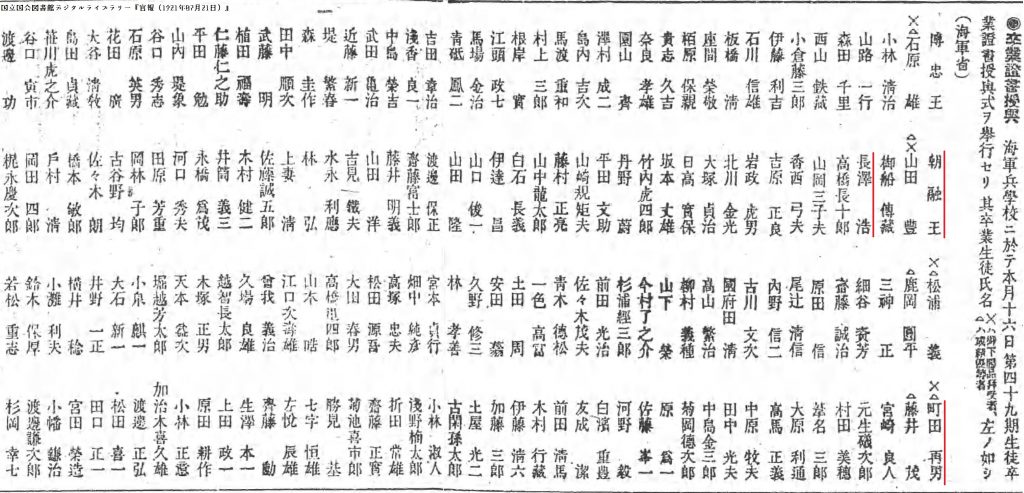 国立国会図書館デジタルライブラリー『官報（1921年07月21日）』
●卒業證書授與　海軍兵學校ニ於テ本月十六日第四十九期生徒卒
業證書授與式ヲ擧行セリ其卒業生徒氏名（×ハ御下賜品拜受者、△ハ成績優等者）左ノ如シ
（海軍省）
博忠王　朝融王　×△松浦義　×町田再男
×△石原雄　×△山田豊　△鹿岡圓平　△藤井茂
小林清治　御船傳藏　三神正　宮崎良人
山路一行　長澤浩　細谷資芳　元生礒次郎
森田千里　高橋長十郎　齋藤誠治　村田美穂
西山鉄藏　山岡三子夫　原田信　草名三郎
小倉藤三郎　香西弓夫　尾辻清信　大原利通
伊藤利吉　吉原正良　內野信二　高馬正義
石川信雄　岩政虎男　古川文次　中原牧夫
板橋清　北川金光　國府田清　田中光夫
座間榮敬　大塚貞治　高山繁治　中島金三郎
栢原保親　日高實保　柳村義種　菊岡德次郎
貴志久吉　坂本丈雄　山下榮　原爲一
奈良孝雄　竹內虎四郎　今村了之介　佐藤峯一
園山齊　丹野蔚　杉浦經三郎　河野毅
澤村成二　平田文助　前田光治　白濱重豊
島內吉次　山崎規矩夫　佐々木茂夫　友成潔
馬渡重和　藤村正亮　青木德松　前田清馬
村上三郎　山中龍太郎　一色高冨　木村行藏
根岸實　白石長義　土田周　伊藤清六
江頭政一　伊達昌　安田蓊　加藤三郎
馬場金治　山口俊一　久野修三　土屋光二
青砥鳳二　山田隆　林孝善　古閑孫太郎
吉田章治　渡邊保正　宮本貞行　小林淑人
淺香良一　齋藤富士郎　畑中純彦　淺野楠太郎
中島榮吉　藤井明義　高塚忠夫　折田常雄
武田龜治　山田洋　松田源吾　齋藤正實
近藤新一　吉見鐵夫　大田春男　菊池喜市郎
堤繁春　水永利應　高橋澄四郎　勝見基
森圭作　林弘　山本晧　七字恒雄
田中順次　上妻清　江口次壽雄　左悅辰雄
武藤明　佐藤誠五郎　曾我義治　齊藤勳
植田福壽　木村健二　久場良雄　生澤本一
仁藤仁之助　井筒義三　越智長太郎　上田政一
平田勉　永橋爲茂　木塚正男　原田耕作
山內堤象　河口秀夫　天本益次　小林正憲
谷口秀志　田原芳重　堀越芳太郎　加治木喜久雄
石原英男　岡林子郎　小泉麒一　渡邊正弘
花田廣　古谷野均　大石新一　松田喜一
大谷清敎　佐々木朗　井野一正　田口正一
島田貞藏　橋本敏郎　横井稔　宮田榮造
笹川虎之介　戸村清　小灘利夫　小幡鎌治
谷口寅市　岡田四郎　鈴木保厚　渡邊謙次郎
渡邊功　梶永慶次郎　若松重志　杉岡幸七